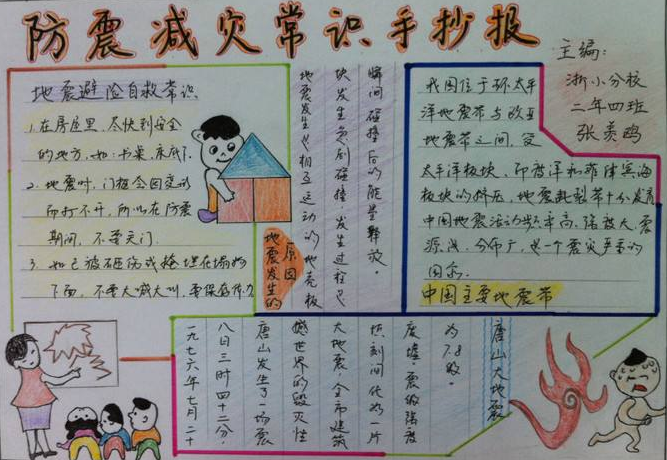 防震减灾常识手抄报
主编：
浙小分校
二年四班
张羡鸥
地震避险自救常识
1.在房屋里，尽快到安全
的地方，如：书桌，床底下.
2.地震时，门框会因变形
而打不开，所以在防震
期间，不要关门.
3.如已被砸伤或掩埋在倒塌物
下面，不要大喊大叫，要保留体力
地震发生的
原因
地震发生也相互运动的地壳板
块发生急剧碰撞，发生过程已
瞬间碰撞后的能量释放。
我国位于环太平
洋地震带与欧亚
地震带之间，受
太平洋板块、印度洋和菲律宾海
板块的挤压，地震断裂带十分发育
中国地震活动频率高、强度大、震
源浅、分布广，是一个震灾严重的
国家。
中国主要地震带
唐山大地震
一九七六年七月二十
八日三时四十二分，
唐山发生了一场震
撼世界的毁灭性
大地震，全市建筑
顷刻间化为一片
废墟，震级强度
为7.8级。